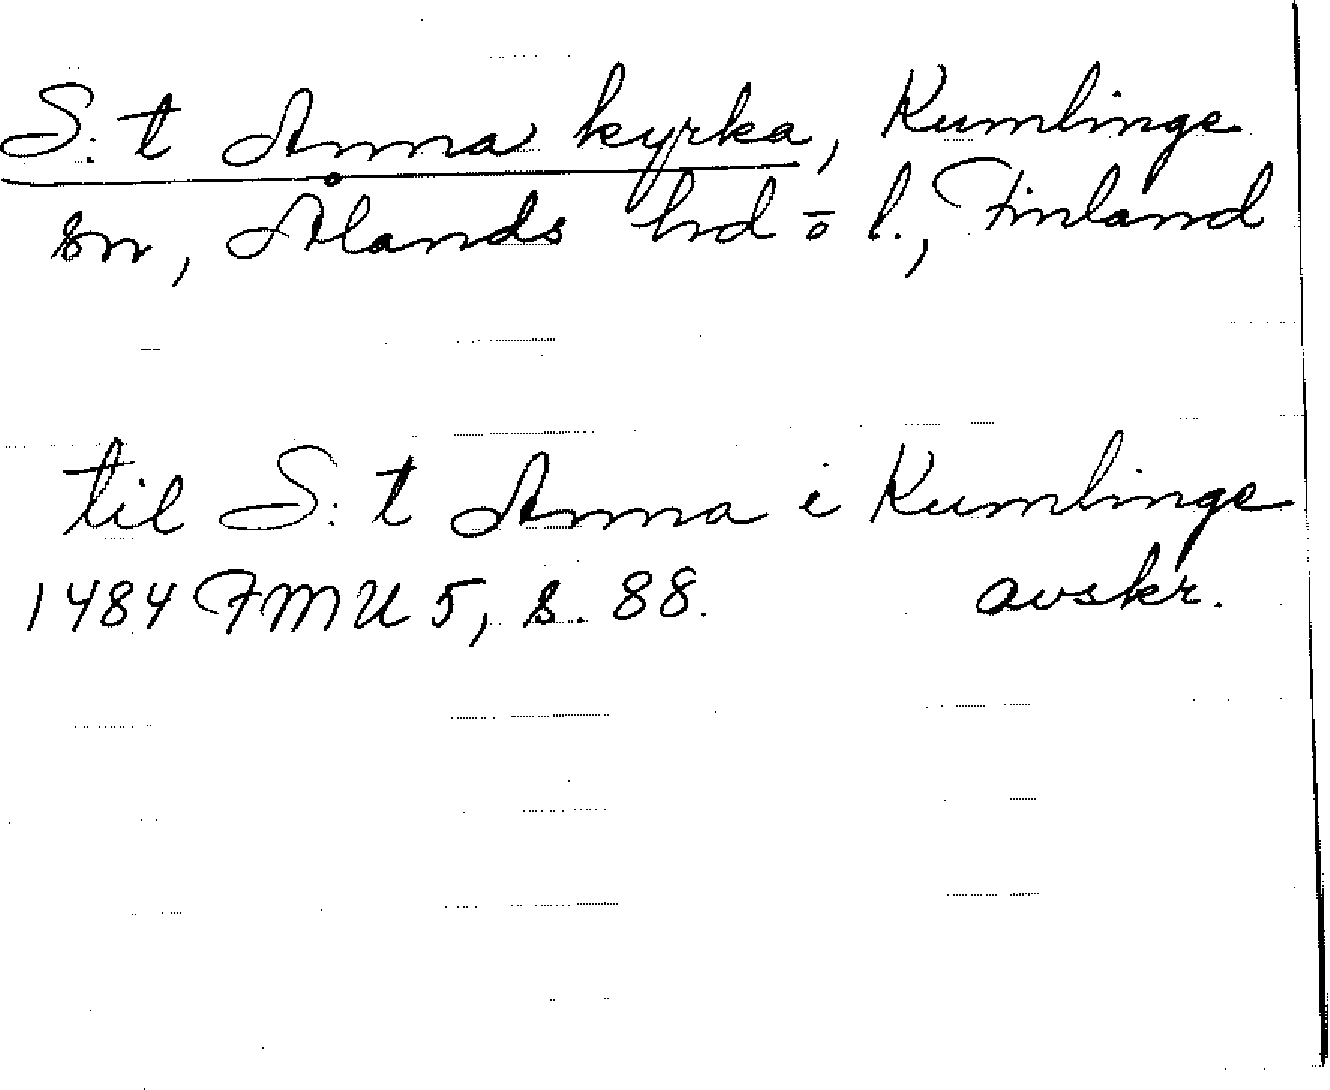 S:t Anna kyrka, Kumlinge
sn, Ålands hd o l., Finland
til S:t Anna i Kumlinge
1484 FMU 5, s. 88. avskr.